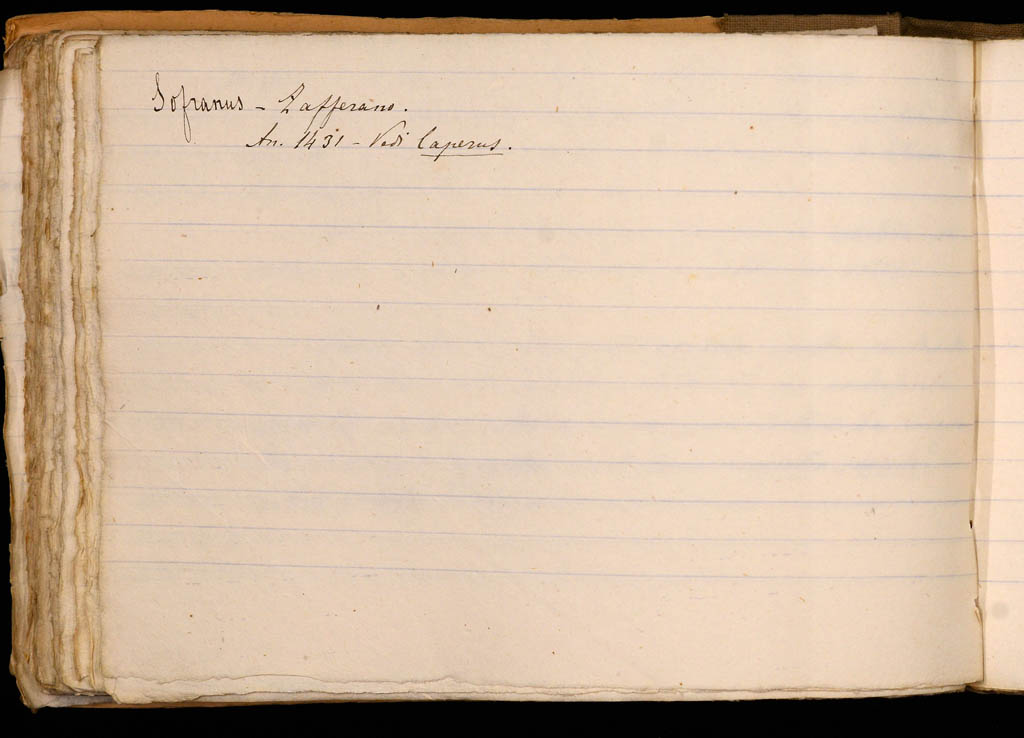 Sofranus - Zafferano.
An. 1431 - Vedi Caperus.